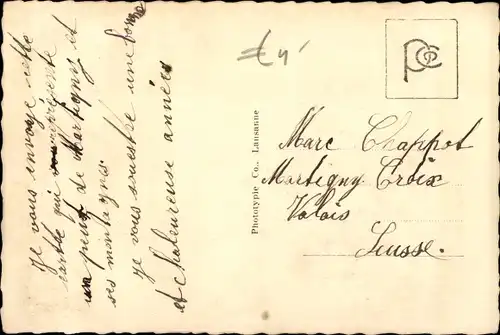 Je vous envoye cette
carthe qui représente
un peut de Martigny et
ses montagnes.
Je vous souestre une bonne
et chaleureuse année
Phototypie Co., Lausanne
Marc Chappot
Martigny Croix
Valais
Suisse.